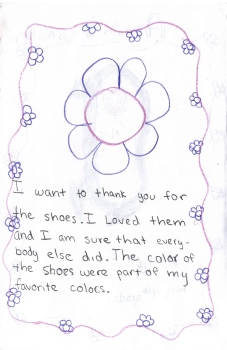 I want to thank you for
the shoes. I Loved them
and I am sure that every-
body else did. The color of
the shoes were part of my
favorite colors.